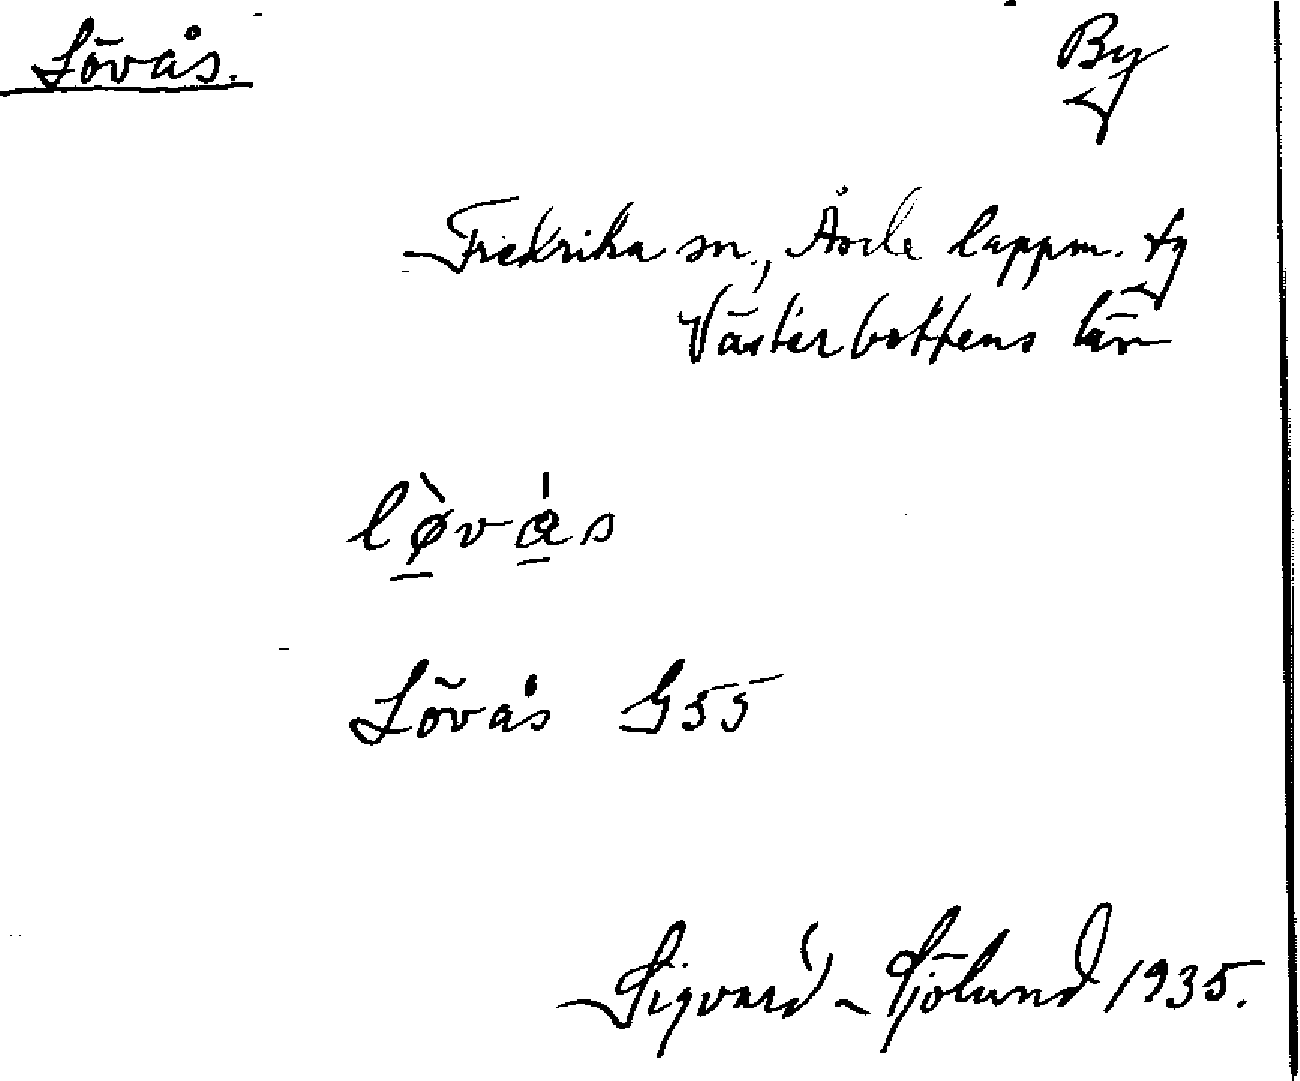 Lövås.
By
Fredrika sn., Åsele lappm. tg
Västerbottens län
lø̀vás
Lövås G55
Sigvard Sjölund 1935.